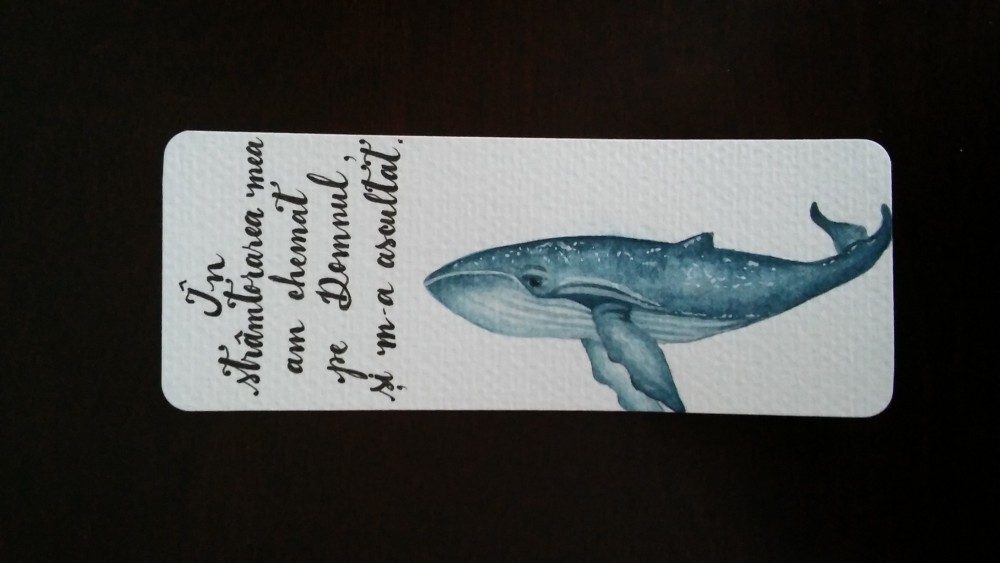 În
strâmtorarea mea
am chemat
pe Domnul,
și m-a ascultat.